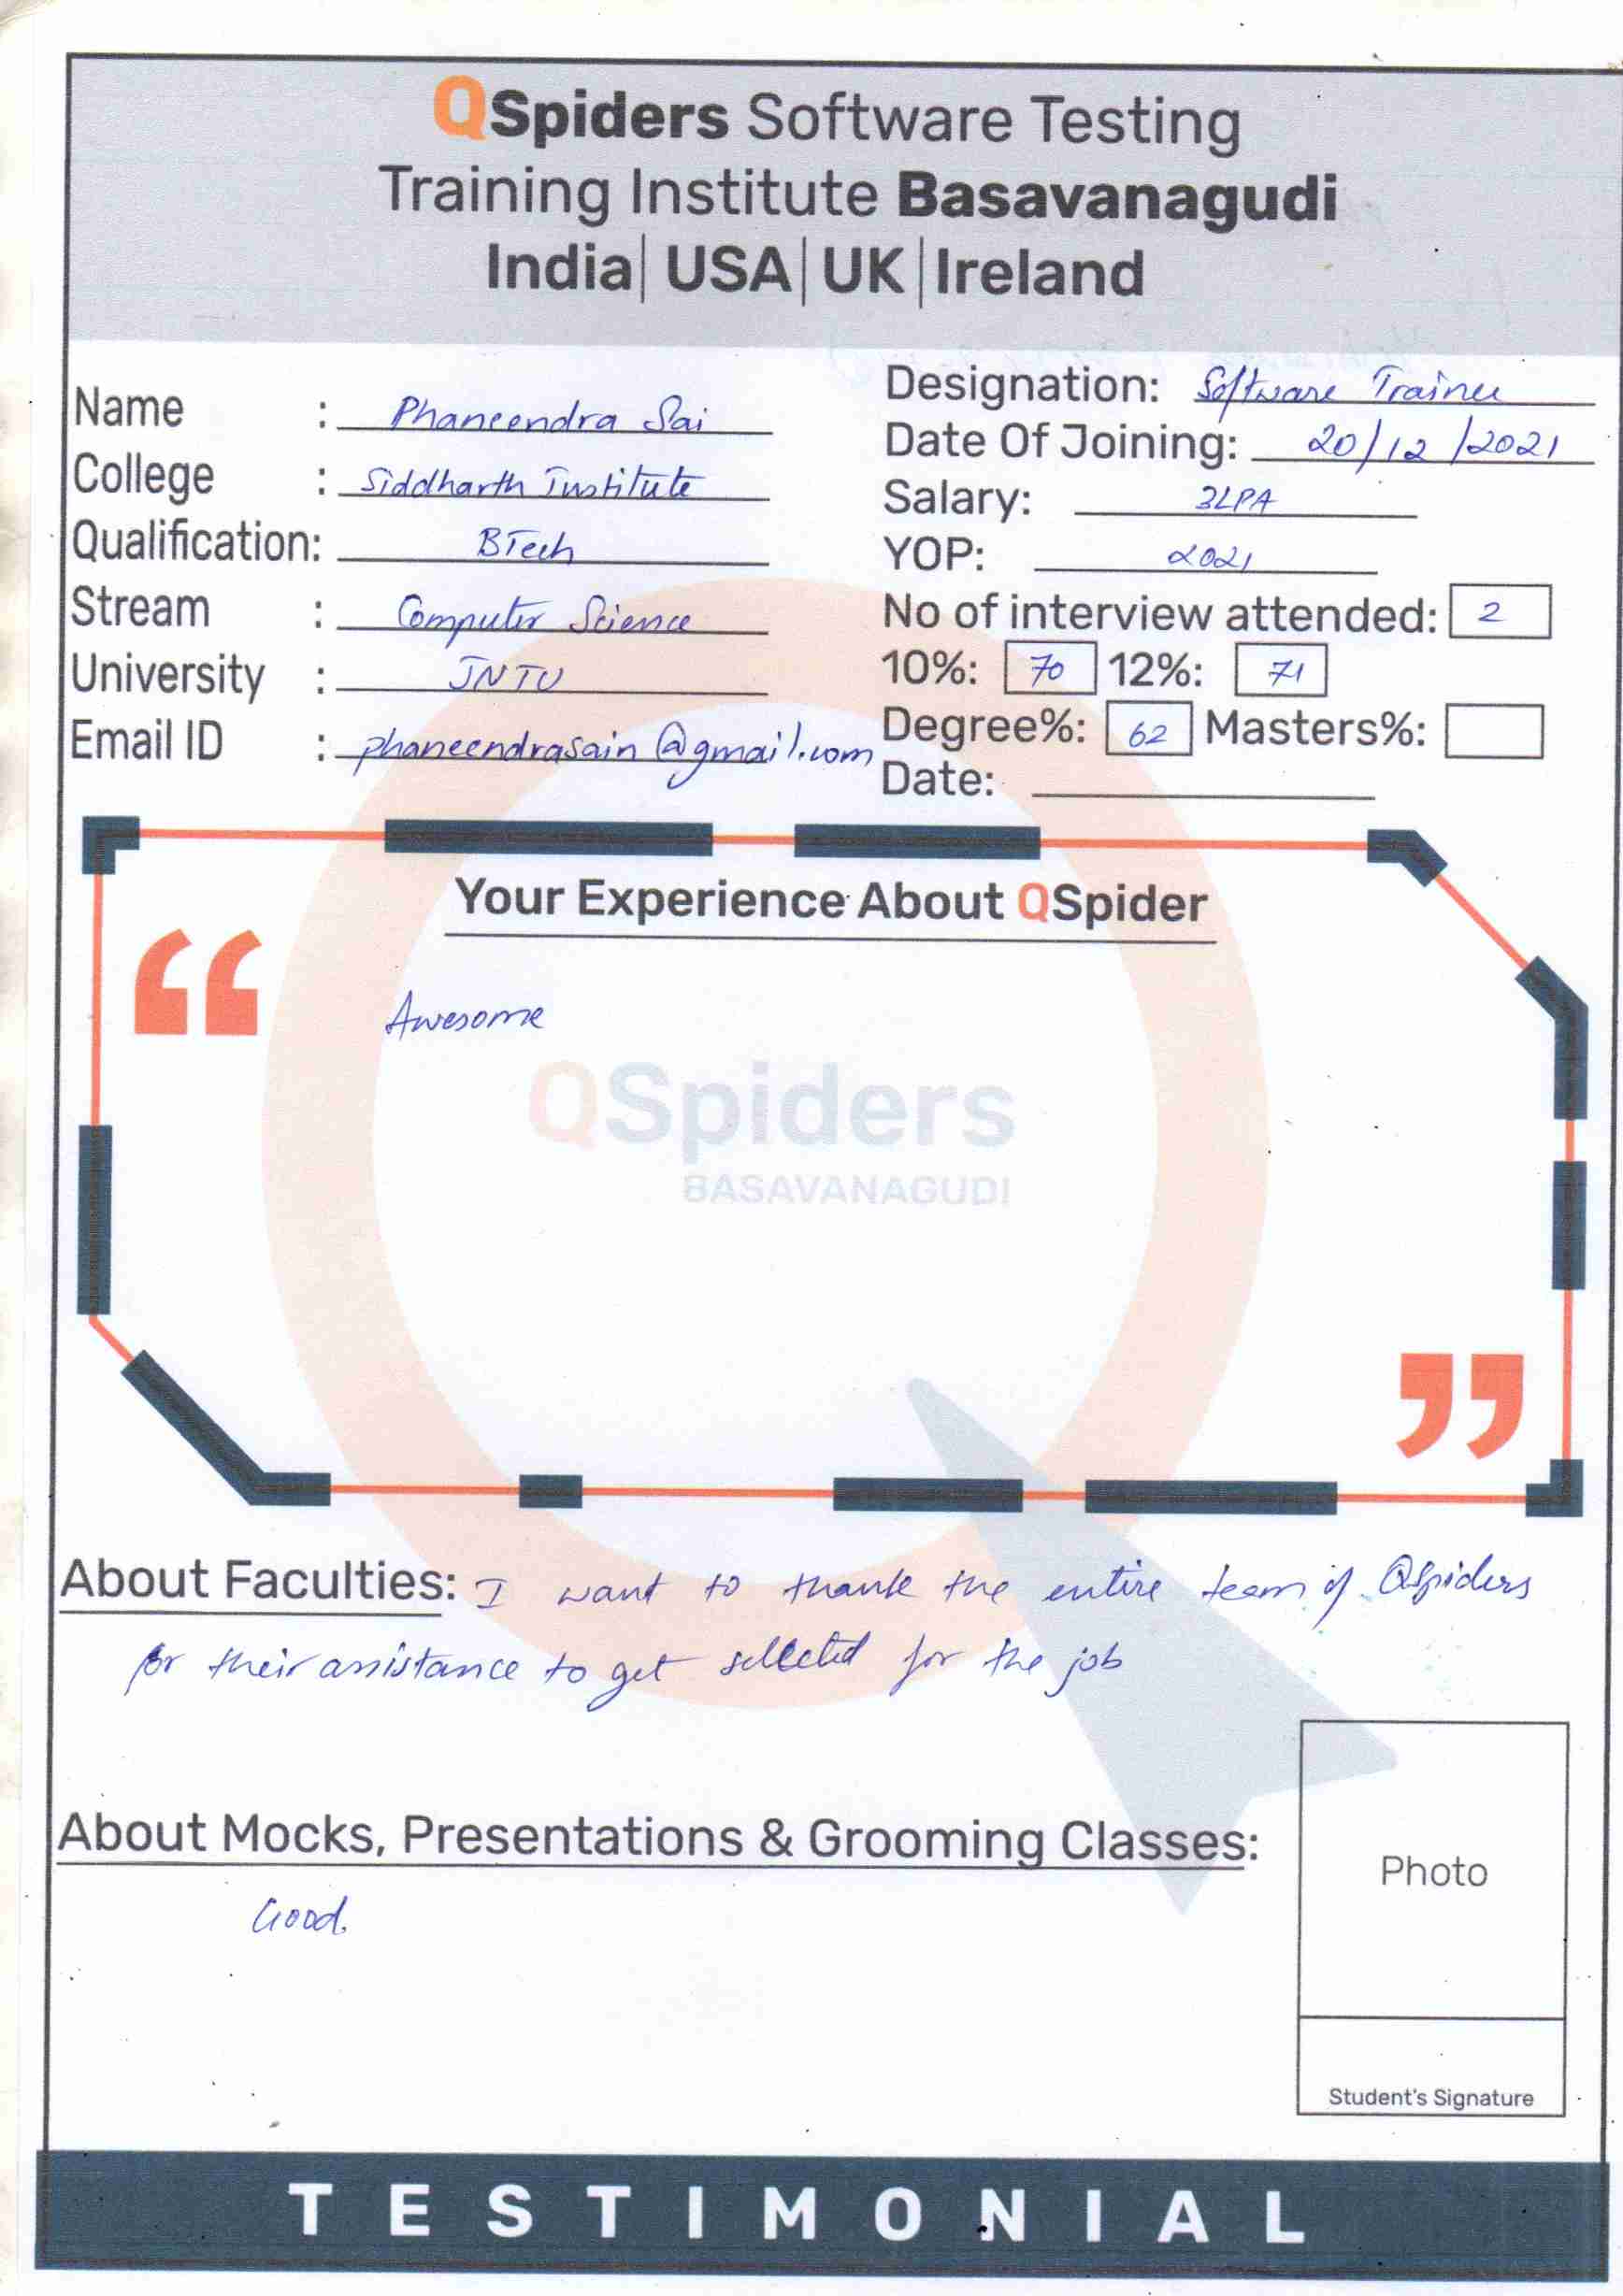 QSpiders Software Testing
Training Institute Basavanagudi
India| USA| UK|Ireland
Name : Phaneendra Sai
College : Siddharth Institute
Qualification: BTech
Stream : Computer Science
University : JNTU
Email ID : phaneendrasain@gmail.com
Designation: Software Trainee
Date Of Joining: 20/12/2021
Salary: 3LPA
YOP: 2021
No of interview attended: 2
10%: 70 12%: 71
Degree%: 62 Masters%:
Date:
Your Experience About QSpider
“
Awesome
QSpiders
BASAVANAGUDI
”
About Faculties: I want to thank the entire team of QSpiders
for their assistance to get sellected for the job
About Mocks, Presentations & Grooming Classes:
Good.
Photo
Student's Signature
TESTIMONIAL